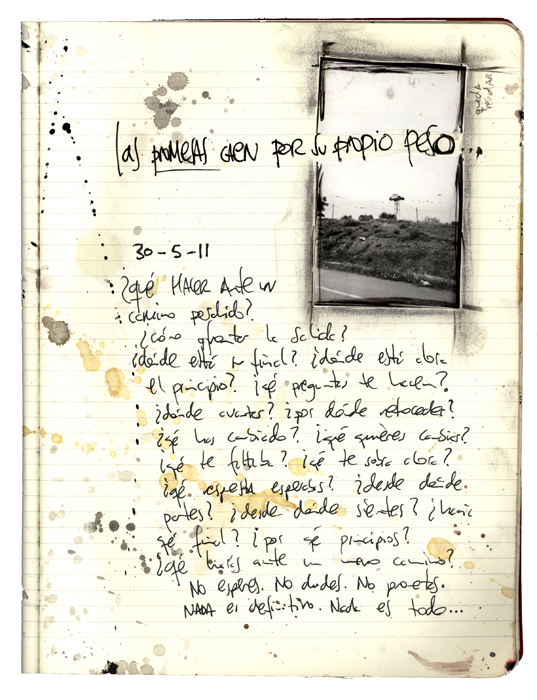 las promesas caen por su propio peso...
queda
30-5-11
¿qué HACER Ante un
camino perdido?
¿cómo la salida?
¿dónde está su final? ¿dónde está ahora
el principio? ¿qué preguntas te hacen?
¿dónde cuentas? ¿por dónde retroceder?
¿qué has cambiado? ¿qué quieres cambiar?
¿qué te faltaba? ¿qué te sobra ahora?
¿qué respuesta esperabas? ¿desde dónde
partes? ¿desde dónde sientes? ¿hacia
qué final? ¿por qué principios?
¿qué harás ante un nuevo camino?
No esperes. No dudes. No prometas.
NADA es definitivo. Nada es todo...